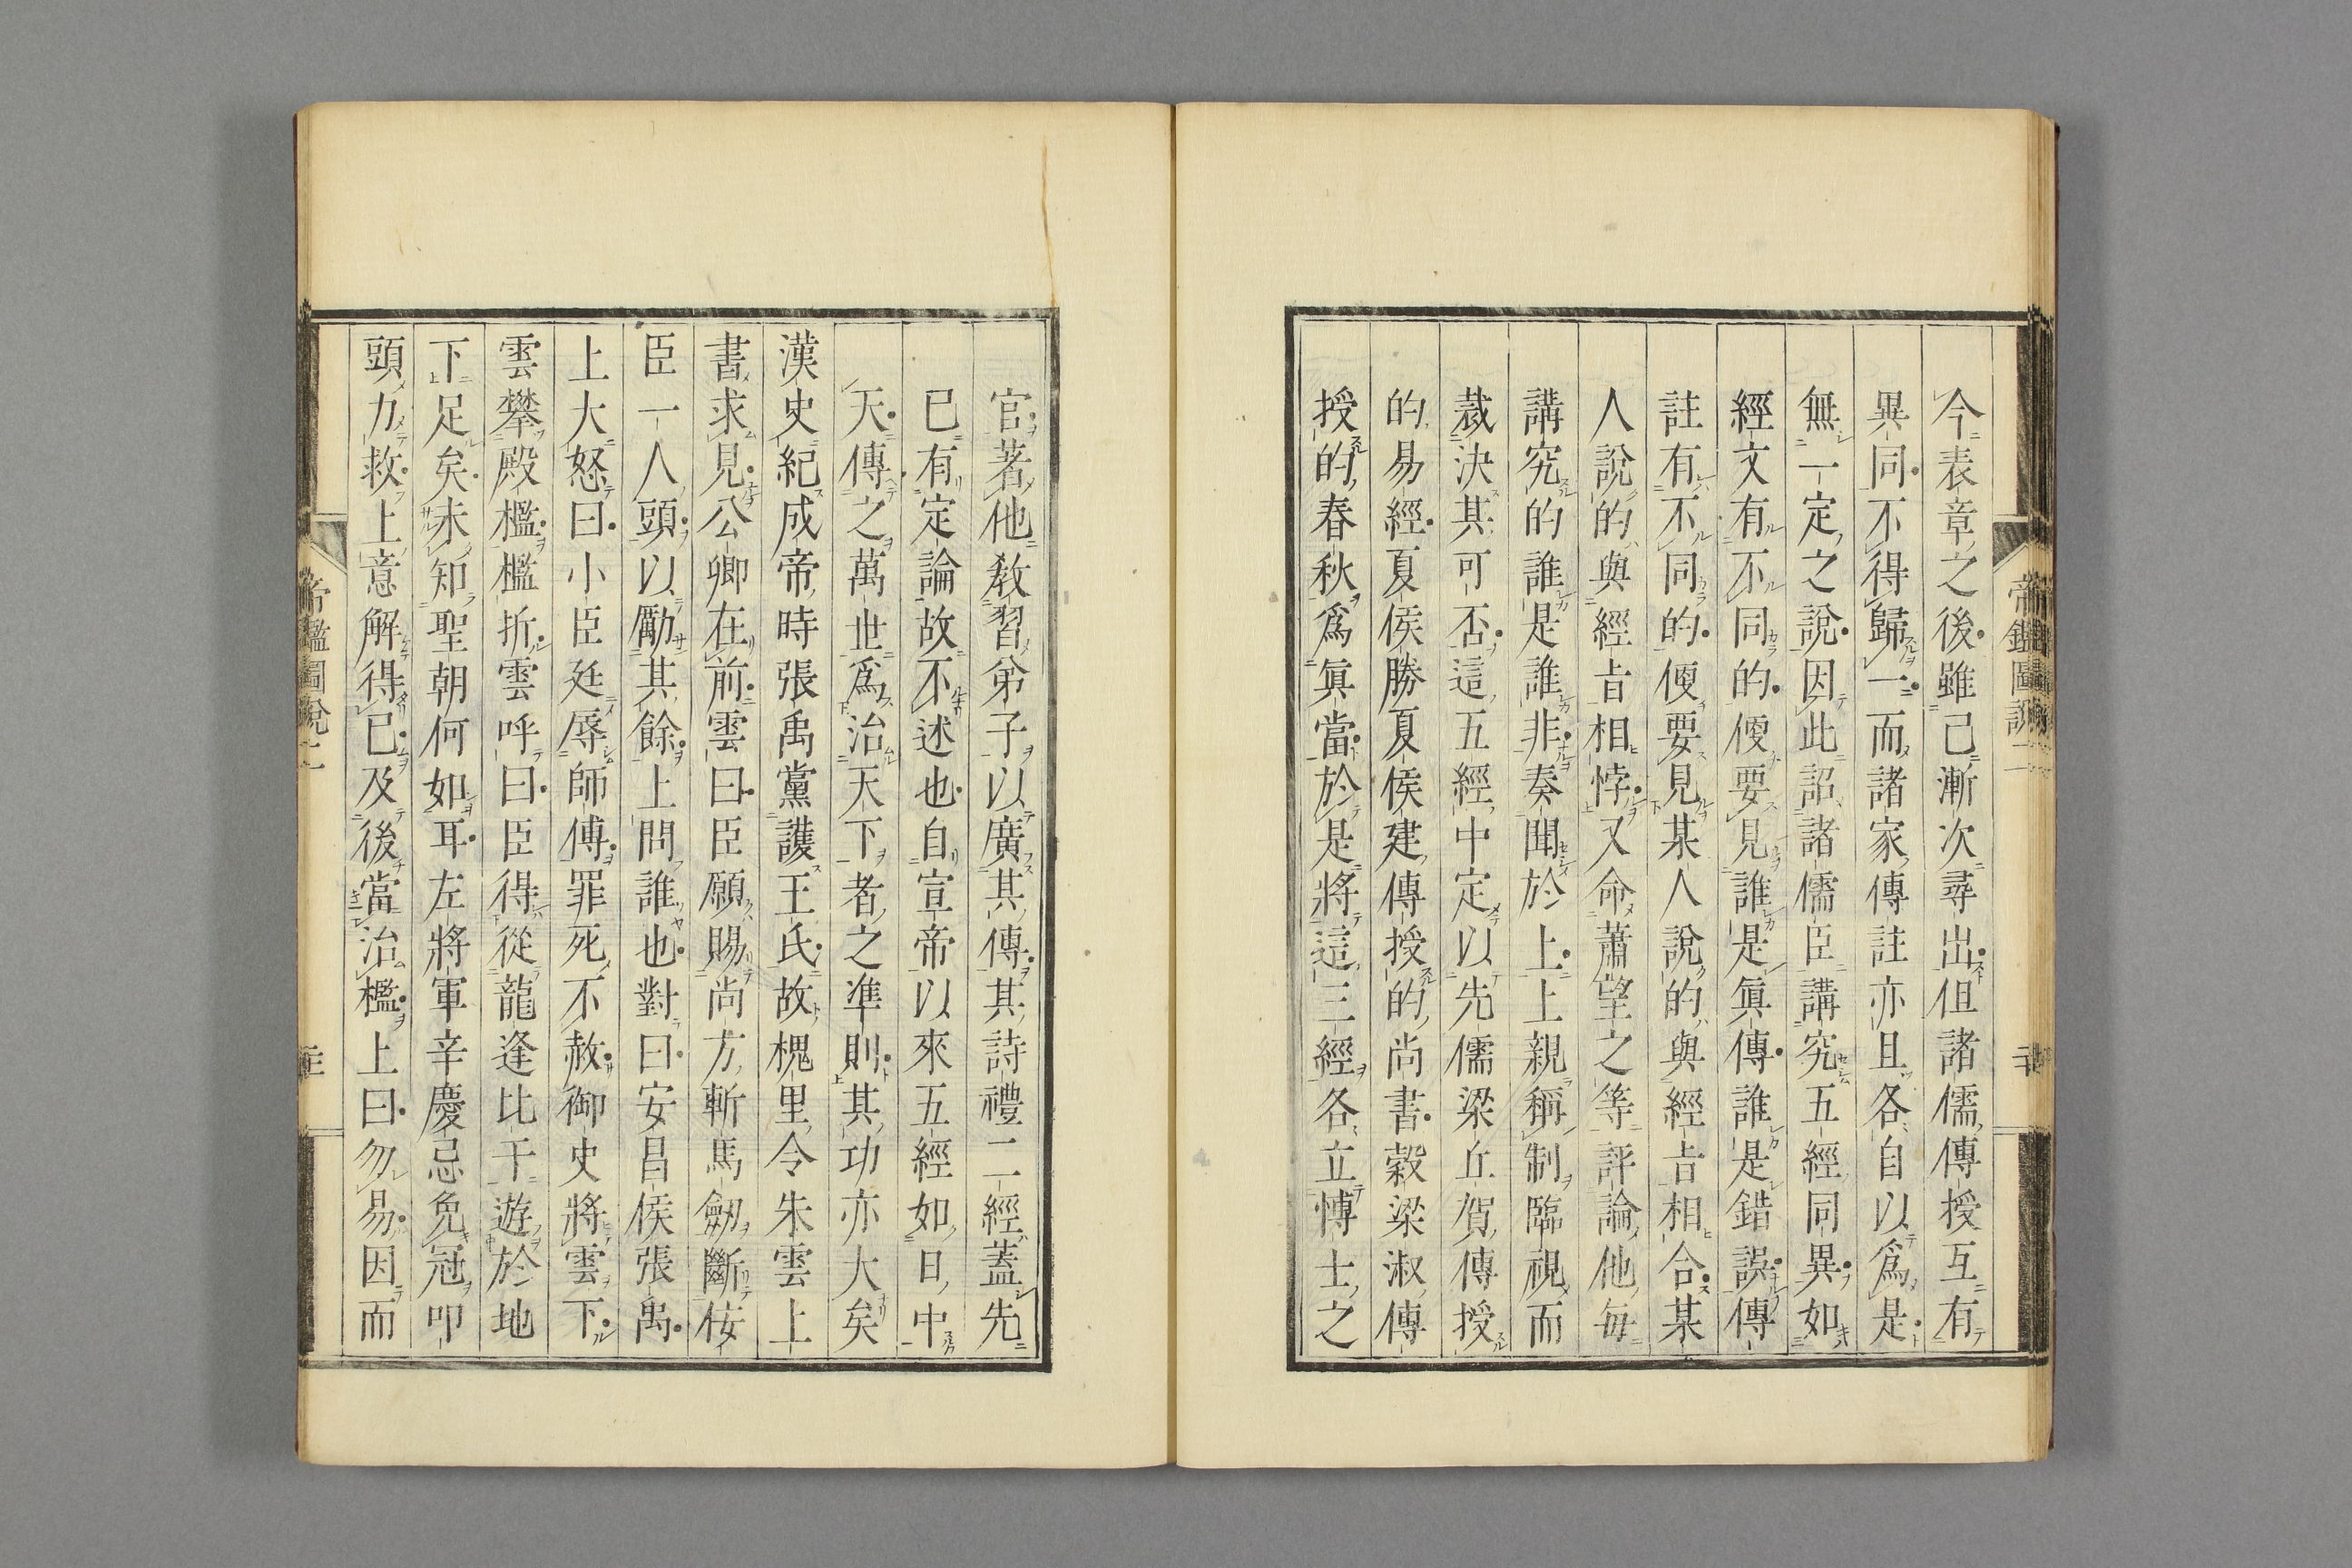 帝鑑圖說二
今表章之後雖已漸次尋出但諸儒傳授互有
異同不得歸一而諸家傳註亦且各自以爲是
無一定之說因此詔諸儒臣講究五經同異如
經文有不同的便要見誰是眞傳誰是錯誤傳
註有不同的便要見某人說的與經旨相合某
人說的與經旨相悖又命蕭望之等評論他每
講究的誰是誰非奏聞於上上親稱制臨視而
裁決其可否這五經中定以先儒梁丘賀傳授
的易經夏侯勝夏侯建傳授的尚書穀梁淑傳
授的春秋爲眞當於是將這三經各立博士之
官著他敎習弟子以廣其傳其詩禮二經蓋先
已有定論故不述也自宣帝以來五經如日中
天傳之萬世爲治天下者之準則其功亦大矣
漢史紀成帝時張禹黨護王氏故槐里令朱雲上
書求見公卿在前雲曰臣願賜尚方斬馬劒斷佞
臣一人頭以勵其餘上問誰也對曰安昌侯張禹
上大怒曰小臣廷辱師傅罪死不赦御史將雲下
雲攀殿檻檻折雲呼曰臣得從龍逢比干遊於地
下足矣未知聖朝何如耳左將軍辛慶忌免冠叩
頭力救上意解得已及後當治檻上曰勿易因而
帝鑑圖說二